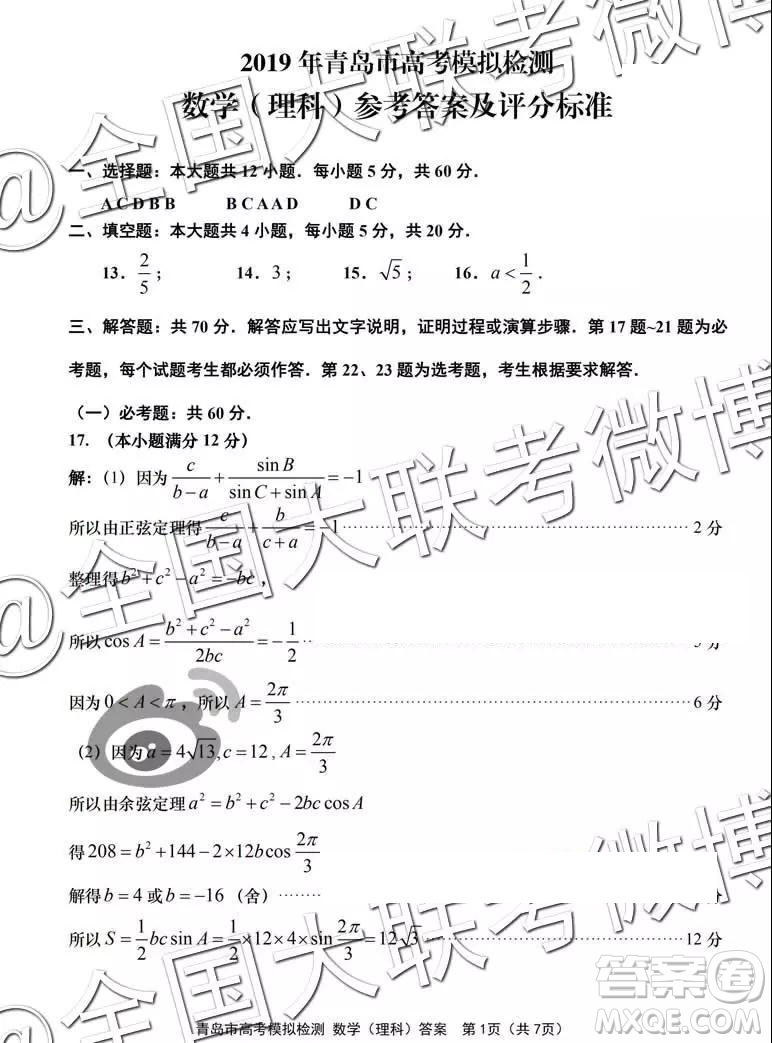 2019 年青岛市高考模拟检测
数学（理科）参考答案及评分标准
一、选择题：本大题共 12 小题．每小题 5 分，共 60 分．
A C D B B B C A A D D C
二、填空题：本大题共 4 小题，每小题 5 分，共 20 分．
13．2/5； 14．3； 15．√5； 16．a < 1/2．
三、解答题：共 70 分．解答应写出文字说明，证明过程或演算步骤．第 17 题~21 题为必
考题，每个试题考生都必须作答．第 22、23 题为选考题，考生根据要求解答．
（一）必考题：共 60 分．
17．（本小题满分 12 分）
解：(1) 因为 c/(b−a) + sin B/(sin C + sin A) = −1
所以由正弦定理得 c/(b−a) + b/(c+a) = −1 ⋯⋯ 2 分
整理得 b² + c² − a² = −bc，
所以 cos A = (b² + c² − a²)/(2bc) = −1/2 ⋯ 分
因为 0 < A < π，所以 A = 2π/3 ⋯⋯ 6 分
(2) 因为 a = 4√13, c = 12, A = 2π/3
所以由余弦定理 a² = b² + c² − 2bc cos A
得 208 = b² + 144 − 2×12b cos 2π/3
解得 b = 4 或 b = −16（舍）⋯⋯ 分
所以 S = 1/2 bc sin A = 1/2 ×12×4×sin 2π/3 = 12√3 ⋯⋯ 12 分
青岛市高考模拟检测 数学（理科）答案 第 1页（共 7页）
@全国大联考微博
@全国大联考微博
答案卷